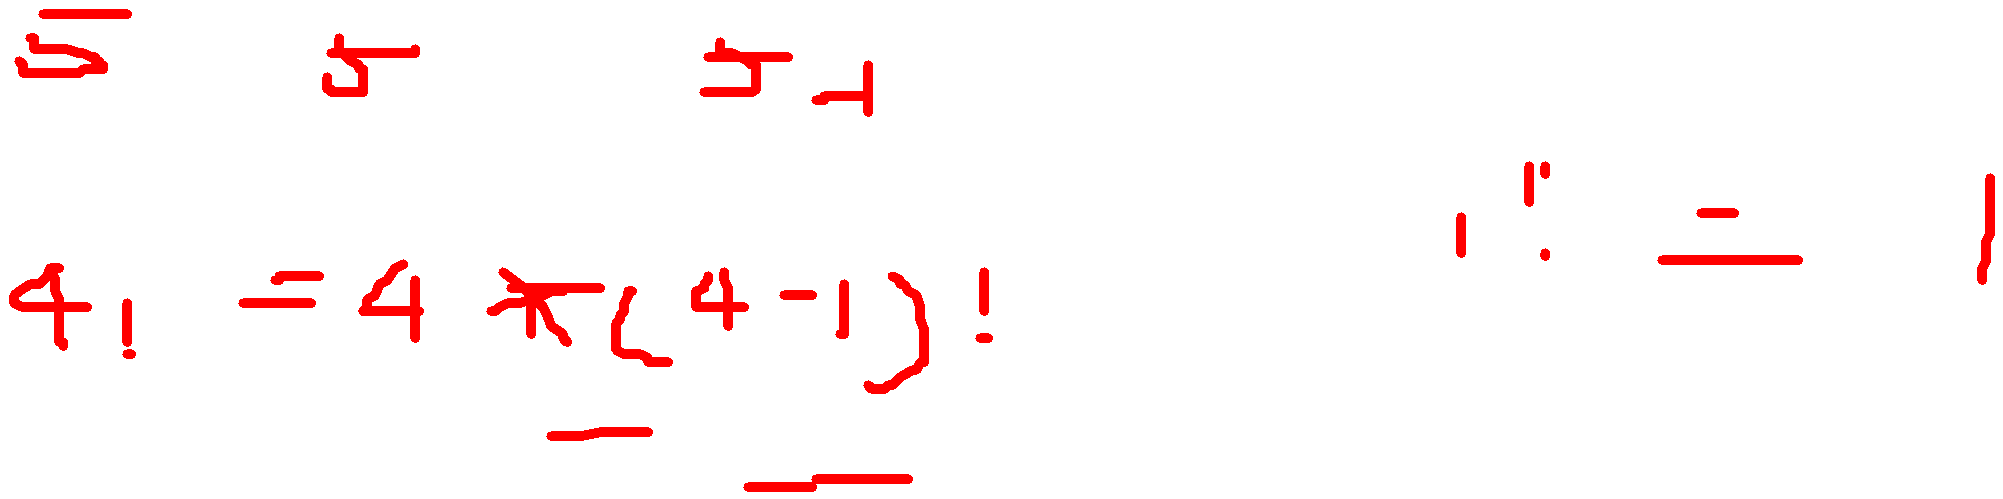 5 5 5-1
4! = 4 * (4-1)!